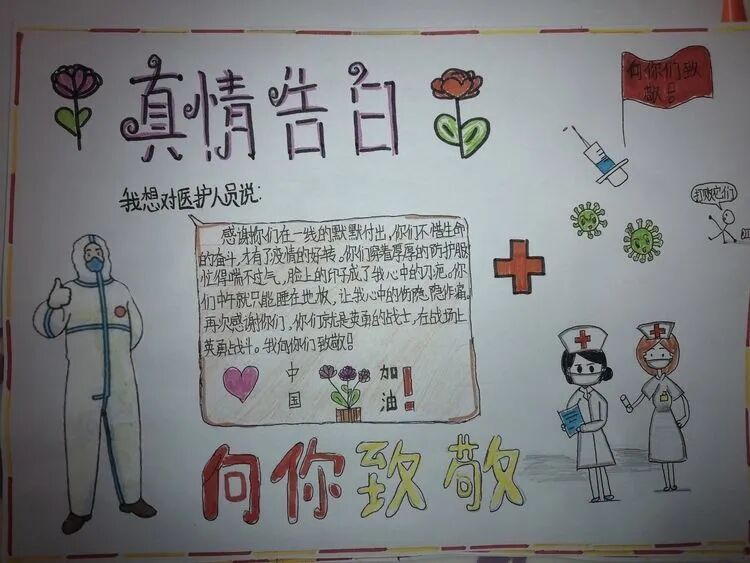 真情告白
向你们致
敬!
打败它们
我想对医护人员说:
感谢你们在一线的默默付出,你们不惜生命
的奋斗,才有了疫情的好转。你们穿着厚厚的防护服
忙得喘不过气,脸上的印子成了我心中的刀疤。你
们中午就只能睡在地板,让我心中的伤疤隐隐作痛。
再次感谢你们,你们就是英勇的战士,在战场上
英勇战斗。我向你们致敬!
中国
加油!
向你致敬